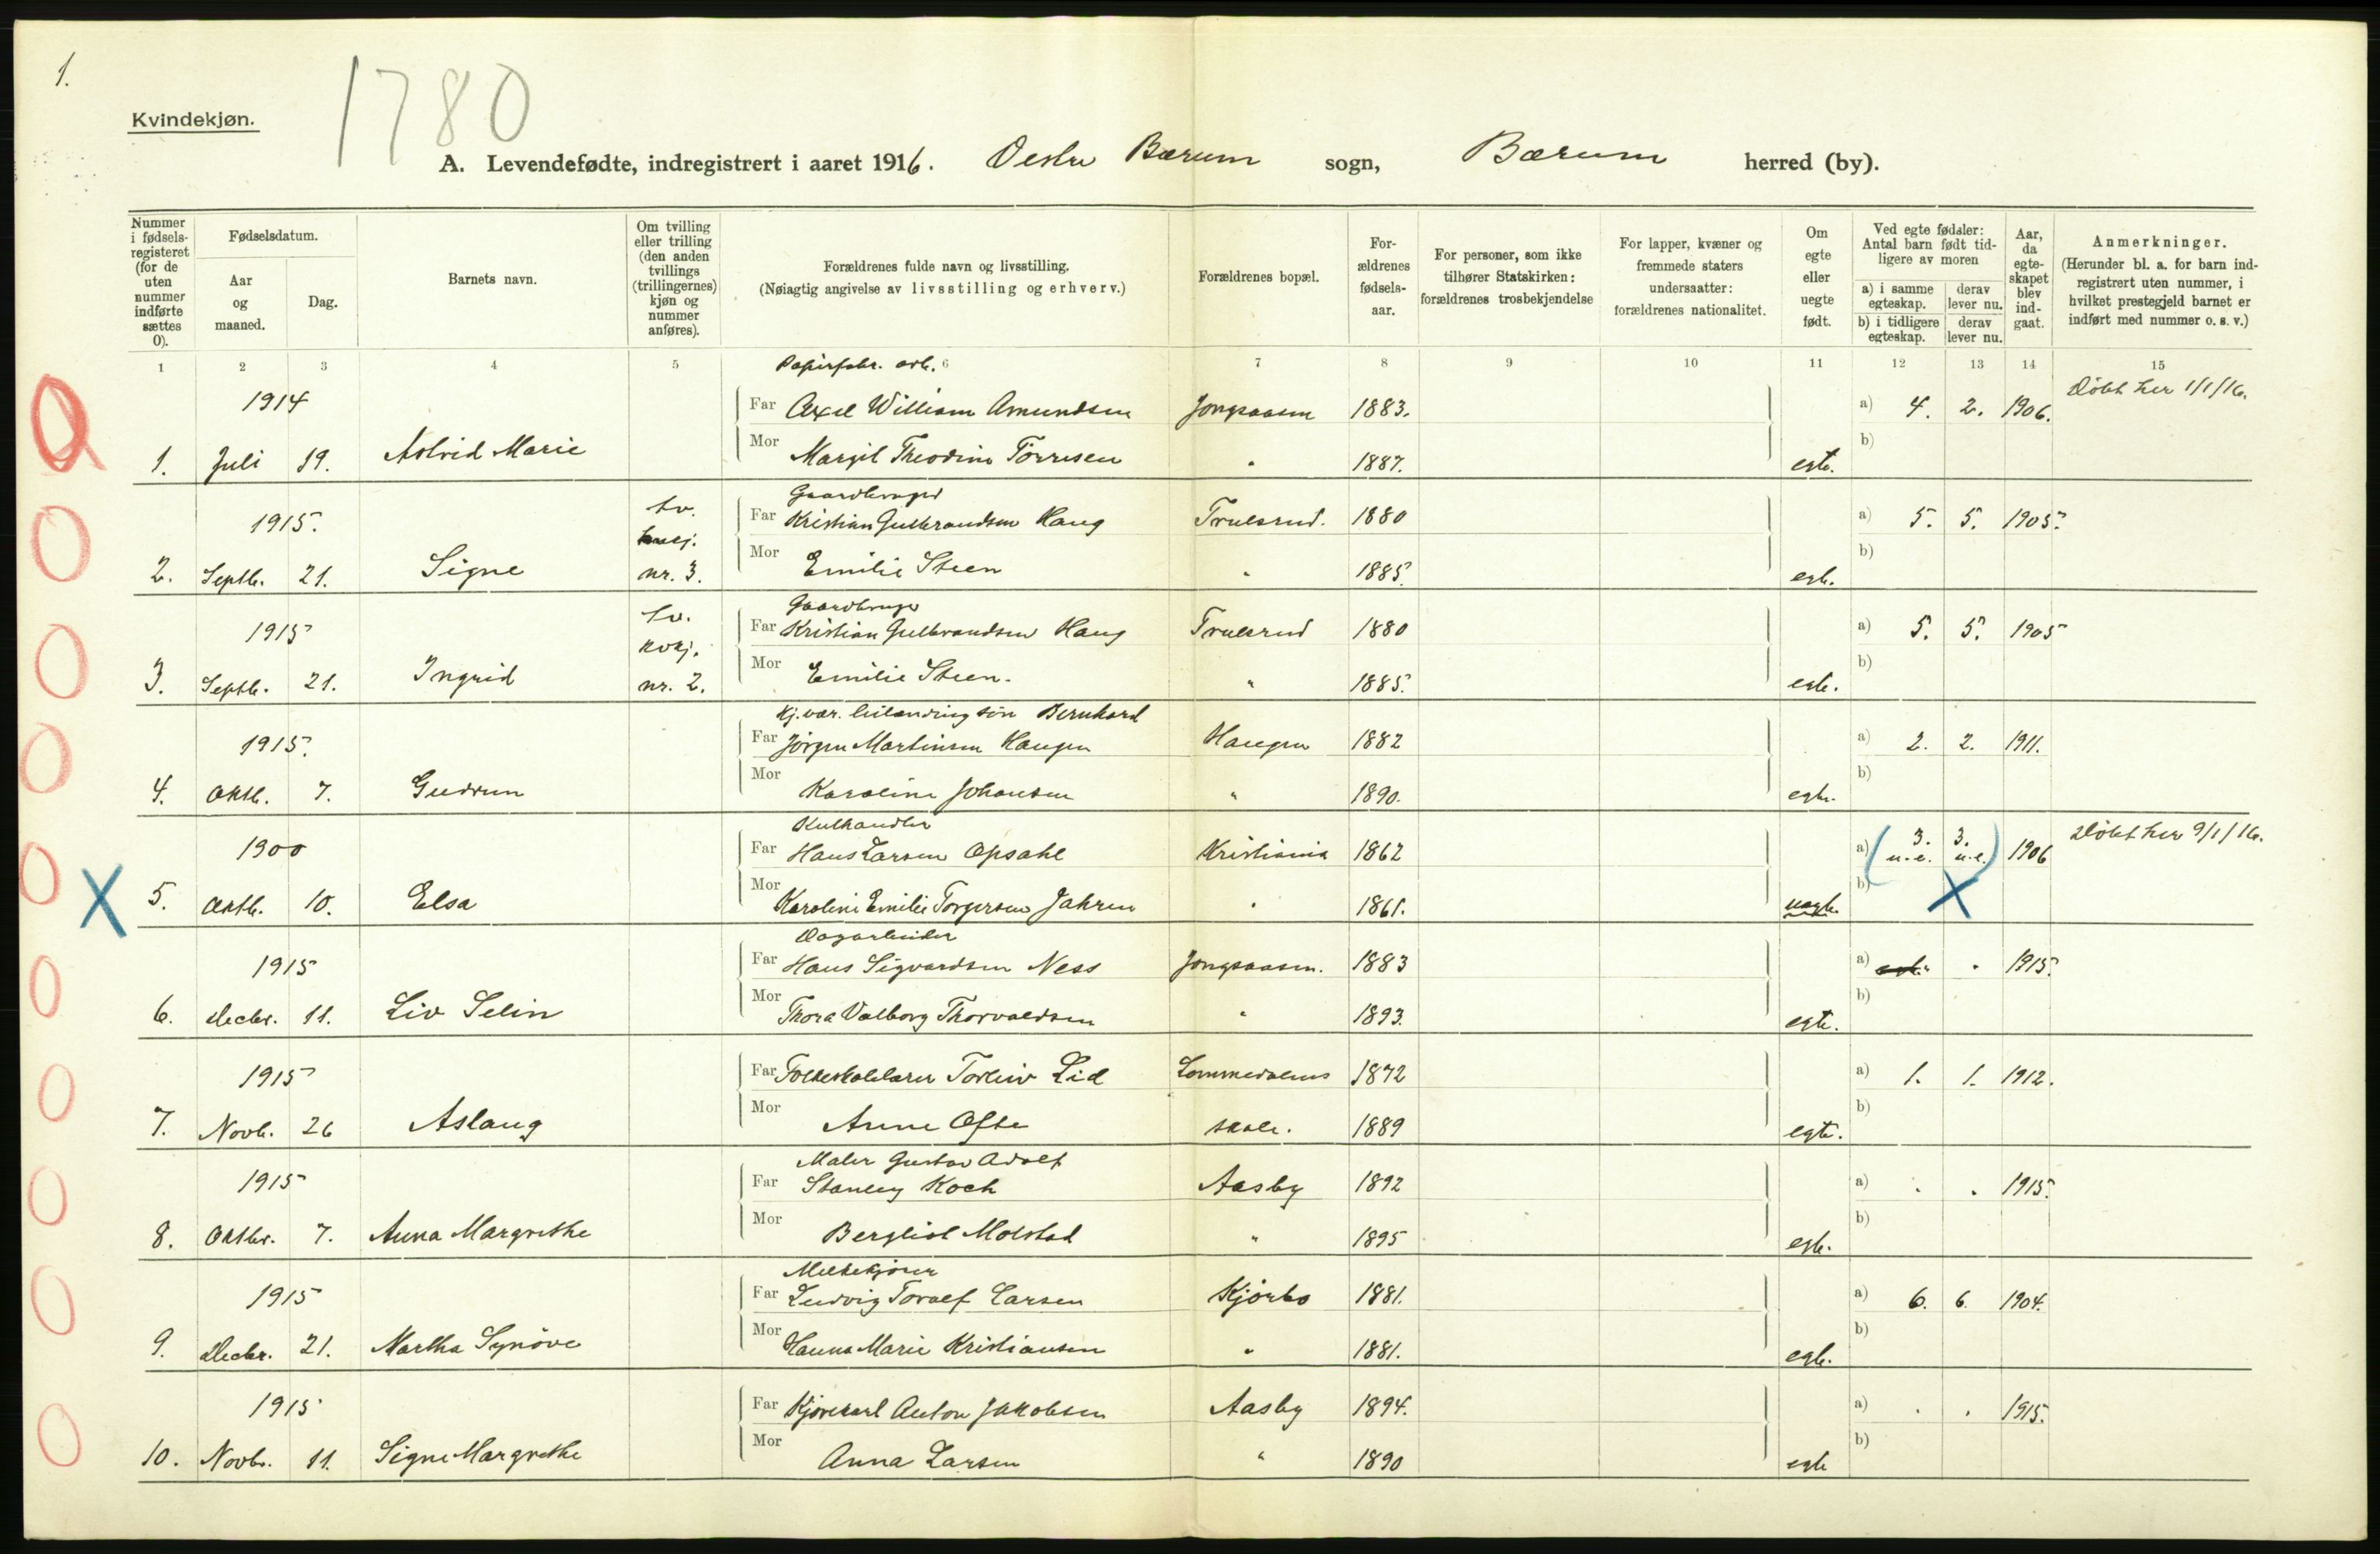 1.
1780
Kvindekjøn.
A. Levendefødte, indregistrert i aaret 1916. Bærum sogn, Bærum herred (by).
Nummer i fødsels-registeret (for de uten nummer indførte sættes 0).
Fødselsdatum.
Aar og maaned.
Dag.
Barnets navn.
Om tvilling eller trilling (den anden tvillings (trillingernes) kjøn og nummer anføres).
Forældrenes fulde navn og livsstilling. (Nøiagtig angivelse av livsstilling og erhverv.)
Forældrenes bopæl.
For-ældrenes fødsels-aar.
For personer, som ikke tilhører Statskirken: forældrenes trosbekjendelse
For lapper, kvæner og fremmede staters undersaatter: forældrenes nationalitet.
Om egte eller uegte født.
Ved egte fødsler: Antal barn født tid-ligere av moren
a) i samme egteskap. derav lever nu.
b) i tidligere egteskap. derav lever nu.
Aar, da egte-skapet blev ind-gaat.
Anmerkninger. (Herunder bl. a. for barn ind-registrert uten nummer, i hvilket prestegjeld barnet er indført med nummer o. s. v.)
1 2 3 4 5 6 7 8 9 10 11 12 13 14 15
Papirfabr. arb.
1914 Far Axel William Amundsen Jongsaasen 1883. a) 4. 2. 1906. Döbt her 1/1/16.
1. Juli 19. Astrid Marie Mor Margit Theodine Törresen " 1887. egte. b)
tv. Gaardbruger
1915. Far Kristian Gulbrandsen Haug Trulsrud. 1880 a) 5. 5. 1905.
2. Septb. 21. Signe nr. 3. Mor Emilie Steen " 1885. egte. b)
tv. Gaardbruger
1915 kvkj. Far Kristian Gulbrandsen Haug Trulsrud 1880 a) 5. 5. 1905
3. Septb. 21. Ingrid nr. 2. Mor Emilie Steen. " 1885. egte. b)
Bernhard
1915. Far Jörgen Martinsen Haugen Haugen 1882 a) 2. 2. 1911.
4. Oktb. 7. Gudrun Mor Karoline Johansen " 1890. egte. b)
Kulhandler
1900 Far Hans Larsen Opsahl Kristiania 1862 a) (3. u.e. 3. u.e.) 1906 Döbt her 9/1/16.
X 5. Oktb. 10. Elsa Mor Karoline Emilie Torgersen Jahren " 1861. uegte. b) X
Dagarbeider
1915 Far Hans Sigvardsen Ness Jongsaasen. 1883 a) " 1915.
6. Decbr. 11. Liv Selin Mor Thora Valborg Thorvaldsen " 1893. egte. b)
1915 Far Folkeskolelærer Torleiv Lid Lommedalens 1872 a) 1. 1. 1912.
7. Novb. 26 Aslaug Mor Anne Ofte skole. 1889 egte. b)
Maler Gustav Adolf
1915 Far Stanley Koch Aasby 1892 a) " " 1915.
8. Oktbr. 7. Anna Margrethe Mor Bergliot Molstad " 1895 egte. b)
Melkekjører
1915 Far Ludvig Toralf Larsen Kjörbo 1881. a) 6. 6. 1904.
9. Decbr. 21. Martha Synöve Mor Hanna Marie Kristiansen " 1881. egte. b)
1915 Far Kjørekarl Anton Jakobsen Aasby 1894. a) " " 1915.
10. Novbr. 11. Signe Margrethe Mor Anna Larsen " 1890 egte b)